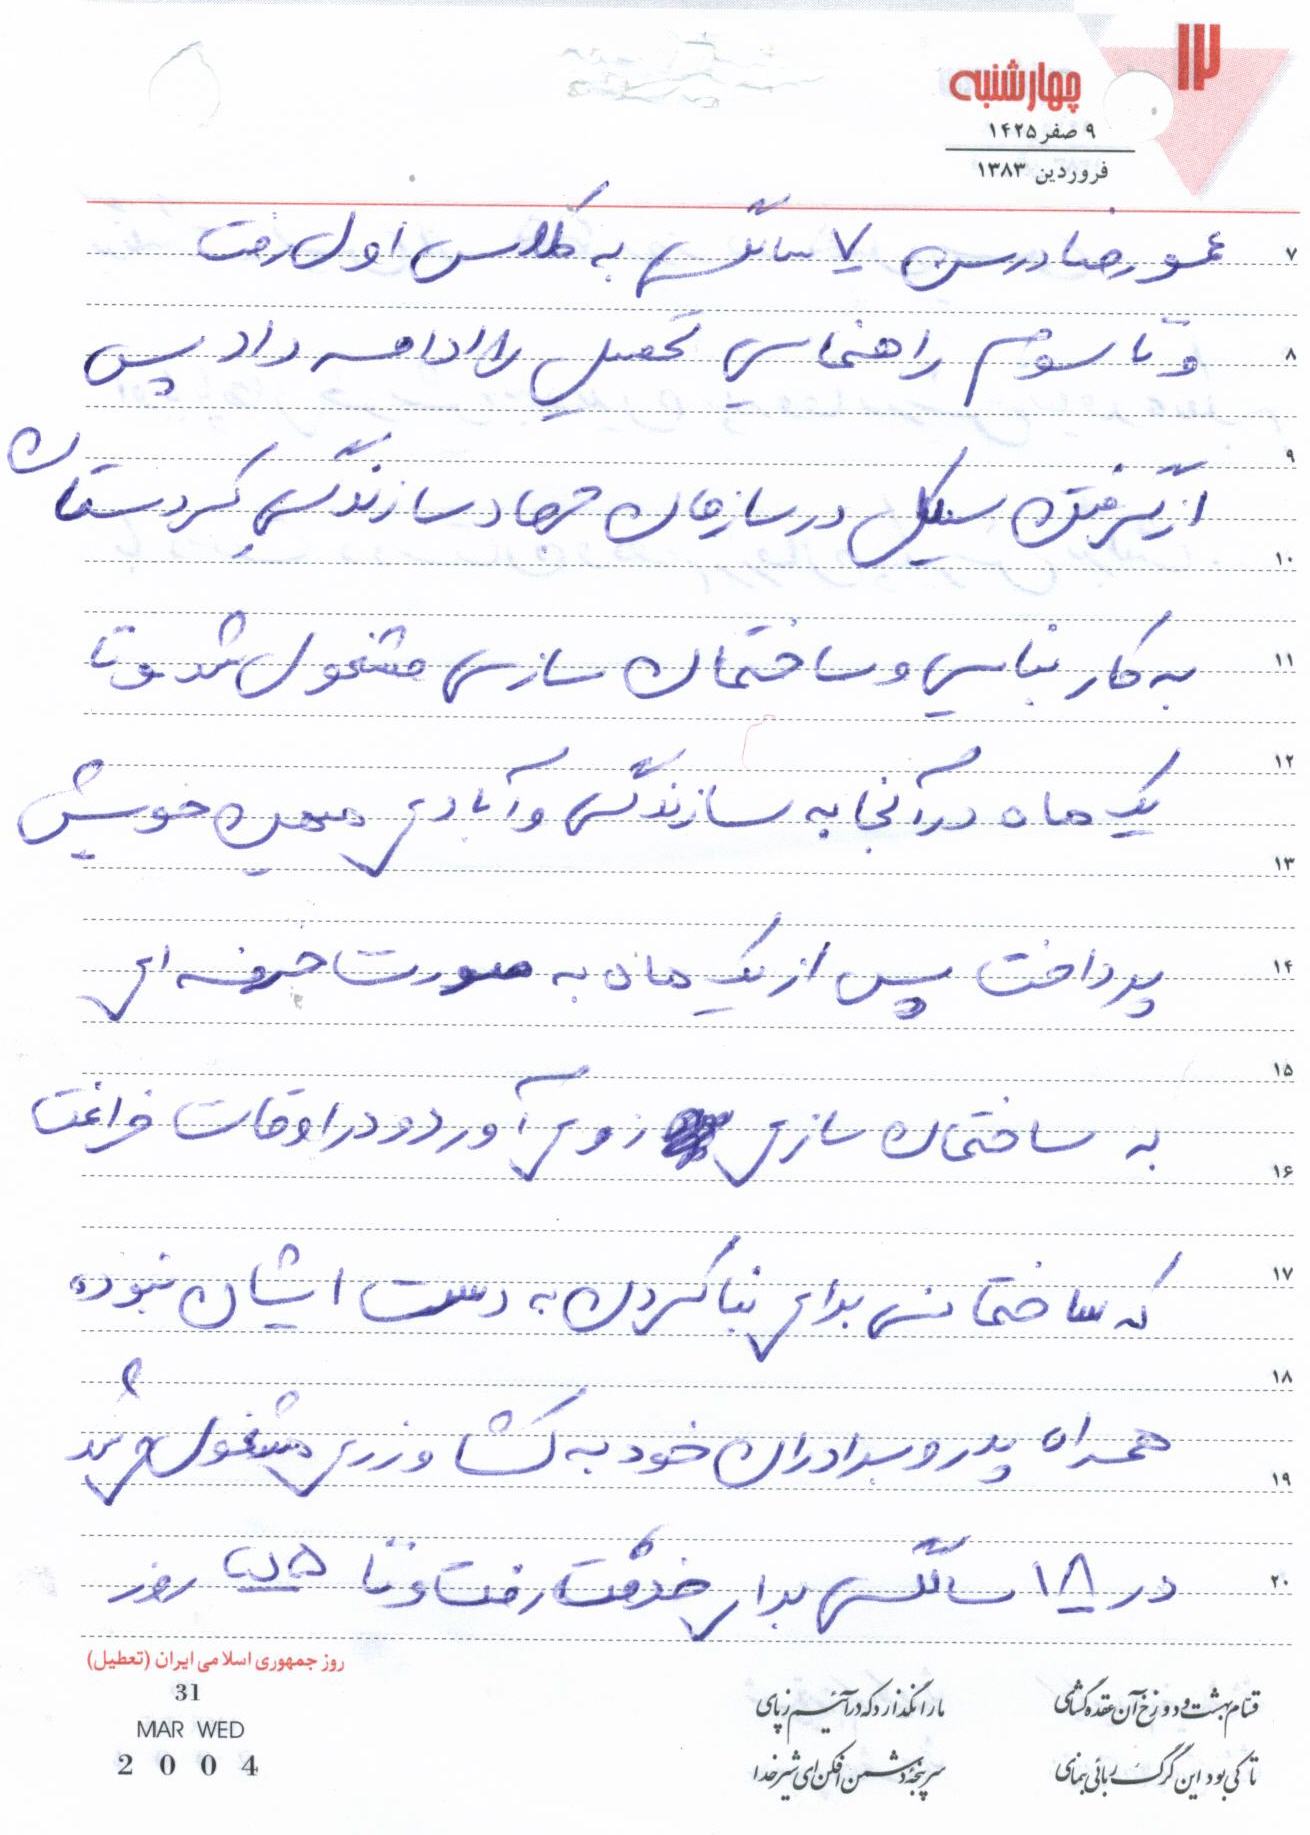 ۱۲
چهارشنبه
۹ صفر ۱۴۲۵
فروردین ۱۳۸۳
۷
عمو رضا در سن ۷ سالگی به کلاس اول رفت
۸
و تا سوم راهنمایی تحصیل را ادامه داد پس
۹
از گرفتن سیکل در سازمان جهاد سازندگی کردستان
۱۰
۱۱
به کار بنایی و ساختمان سازی مشغول شد و تا
۱۲
یک ماه در آنجا به سازندگی و آبادی میهن خویش
۱۳
۱۴
پرداخت پس از یک ماه به صورت حرفه ای
۱۵
به ساختمان سازی روی آورد و در اوقات فراغت
۱۶
۱۷
که ساختمانی برای بنا کردن به دست ایشان نبوده
۱۸
همراه پدر و برادران خود به کشاورزی مشغول می شد
۱۹
۲۰
در ۱۸ سالگی برای خدمت رفت و تا ۴۵ روز
روز جمهوری اسلامی ایران (تعطیل)
31
MAR WED
2004
قسام بهشت و دوزخ آن عقده گشای
ما را نگذارد که درآییم ز پای
تا کی بود این گرگ ربایی بنمای
سرپنجه دشمن افکن ای شیر خدا